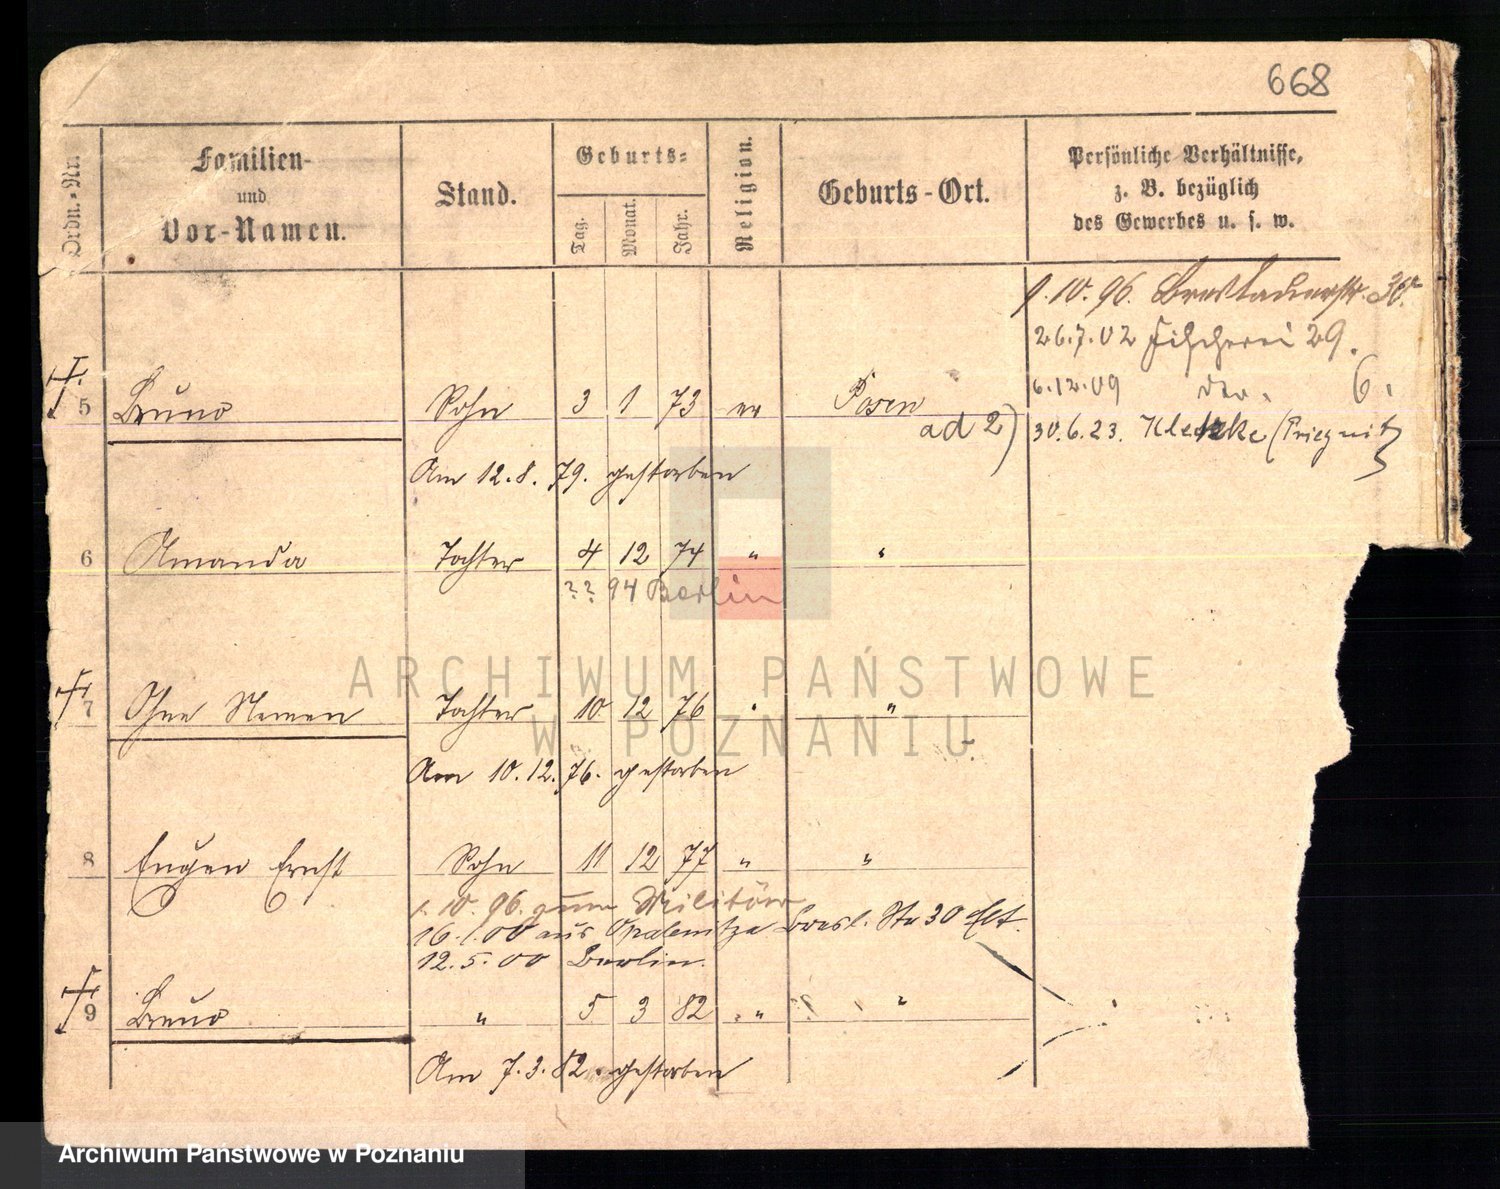 668
Ordn.-Nr.
Familien-
und
Vor-Namen.
Stand.
Geburts-
Tag.
Monat.
Jahr.
Religion.
Geburts-Ort.
Persönliche Verhältnisse,
z. B. bezüglich
des Gewerbes u. s. w.
1.10.96. Breslauerstr. 30.
26.7.02 Fischerei 29.
6.12.09 6.
5 Bruno Sohn 3 1 73 ev Posen
ad 2) 30.6.23. Kletzke (Priegnitz)
Am 12.8.79. gestorben
6 Amanda Tochter 4 12 74 " "
?? 94 Berlin
7 Ohne Namen Tochter 10 12 76 "
Am 10.12.76. gestorben
8 Eugen Ernst Sohn 11 12 77 " "
1.10.96. zum Militär
16.1.00 aus Opalenitza Bresl. Str 30 Elt.
12.5.00 Berlin.
9 Bruno " 5 3 82 " "
Am 7.3.82. gestorben
ARCHIWUM PAŃSTWOWE
W POZNANIU
Archiwum Państwowe w Poznaniu